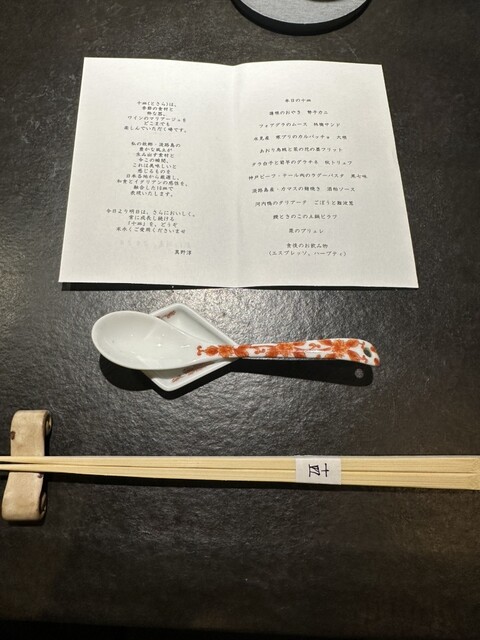 十皿(とさら)は、
季節の食材と
粋な器、
ワインのマリアージュを
どこまでも
楽しんでいただく場です。
私の故郷・淡路島の
豊かな風土が
生み出す素材と
今この瞬間、
これは美味しいと
感じるものを
日本各地から厳選し、
和食とイタリアンの感性を、
融合した十皿で
表現いたします。
今日より明日は、さらにおいしく。
常に成長し続ける
「十皿」を、どうぞ
末永くご愛用くださいませ
本日の十皿
フォアグラのムース 最中サンド
氷見産 寒ブリのカルパッチョ 大根
あおり烏賊と菜の花の春フリット
タラ白子と岩芋のグラチネ 秋トリュフ
神戸ビーフ・テール肉のラグーパスタ 黒七味
淡路島産・カマスの藁焼き 酒粕ソース
河内鴨のタリアータ ごぼうと難波葱
鯛ときのこの土鍋ピラフ
栗のブリュレ
食後のお飲み物
(エスプレッソ、ハーブティ)
十皿